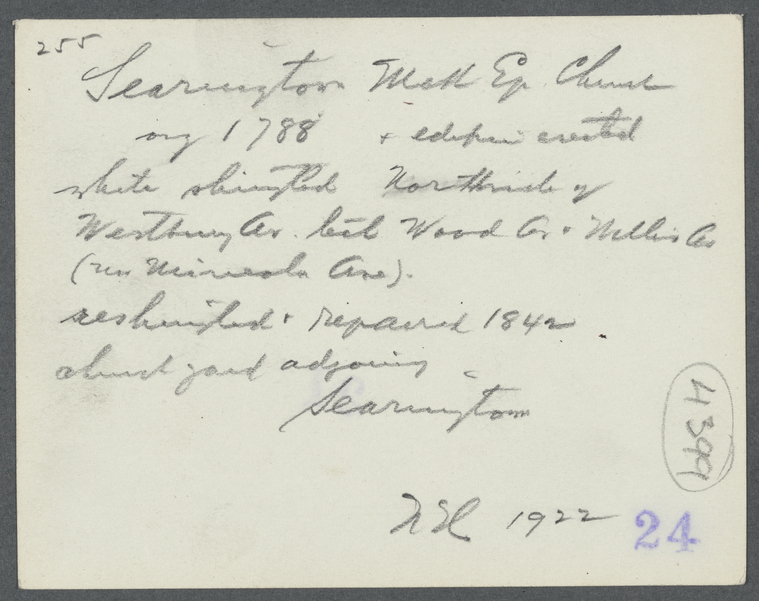 255
Searingtown Meth Ep. Church
org 1788 + edifice erected
white shingled Northside of
Westbury Av. bet Wood Av + Av
(nr Mineola Ave).
reshingled + repaired 1842
church yard adjoining
Searingtown
4399
1922 24